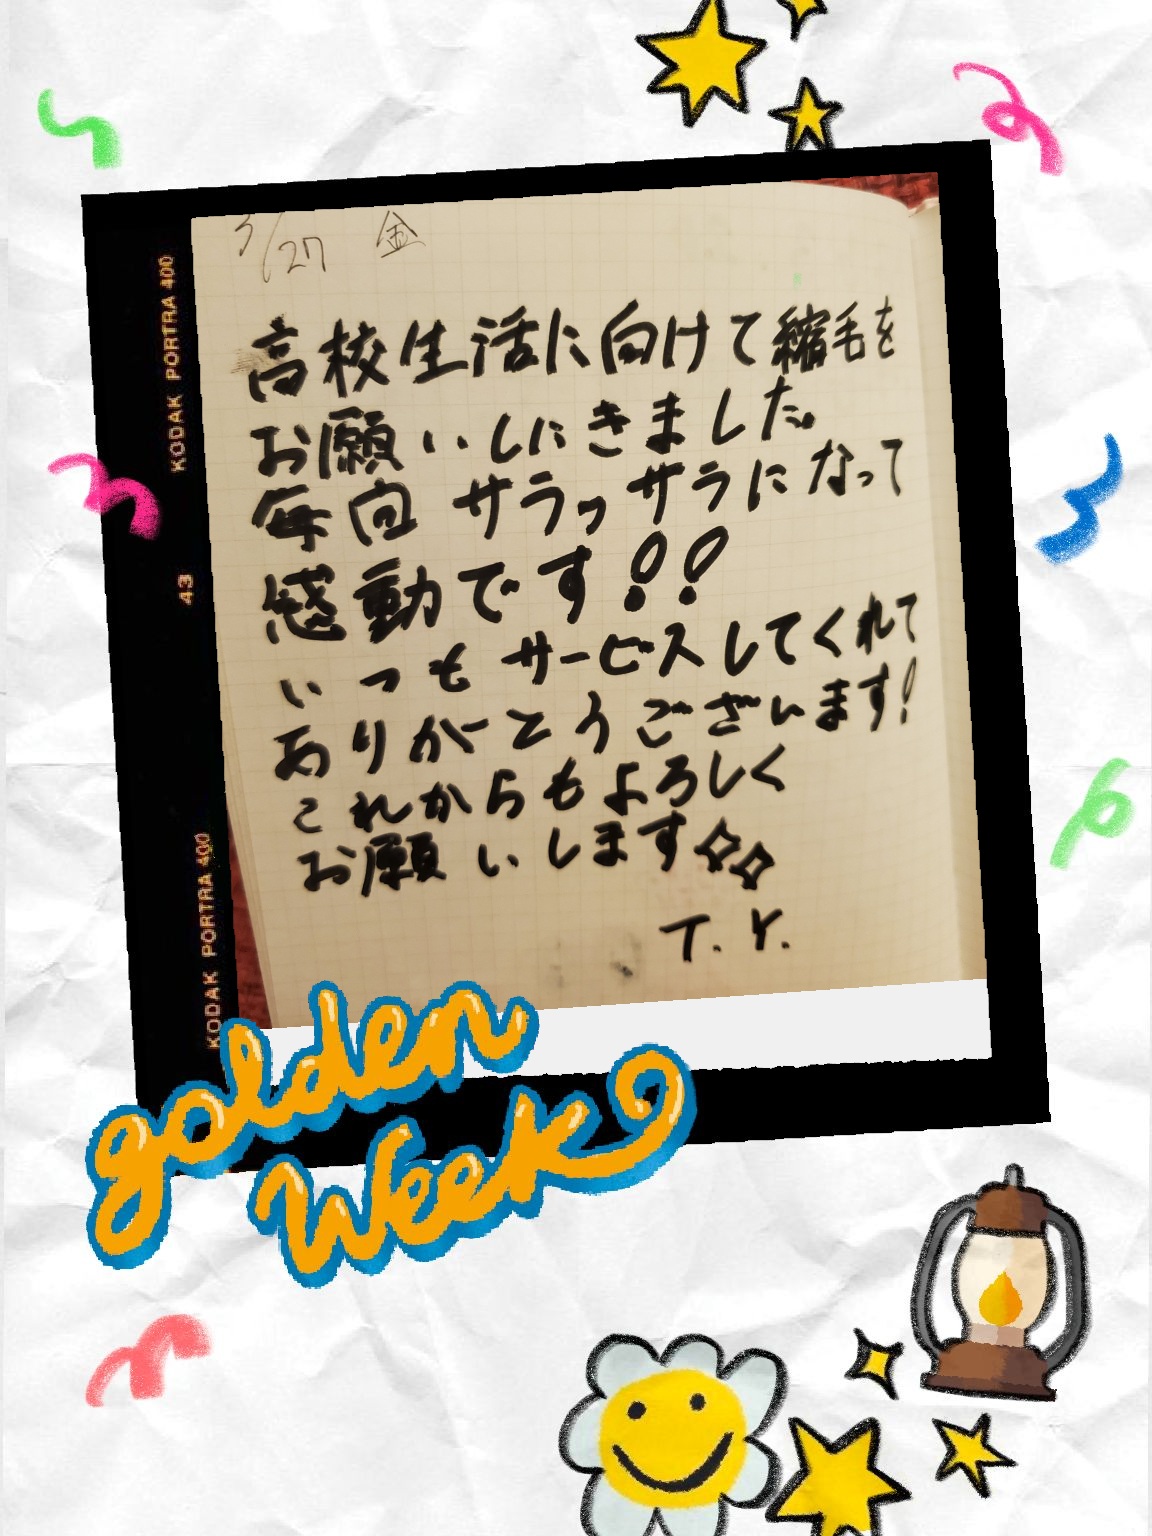 3/27 金
高校生活に向けて縮毛を
お願いしにきました。
毎回 サラッサラになって
感動です!!
いつもサービスしてくれて
ありがとうございます!
これからもよろしく
お願いします
T.Y.
KODAK PORTRA 400
43
KODAK PORTRA 400
golden
Week